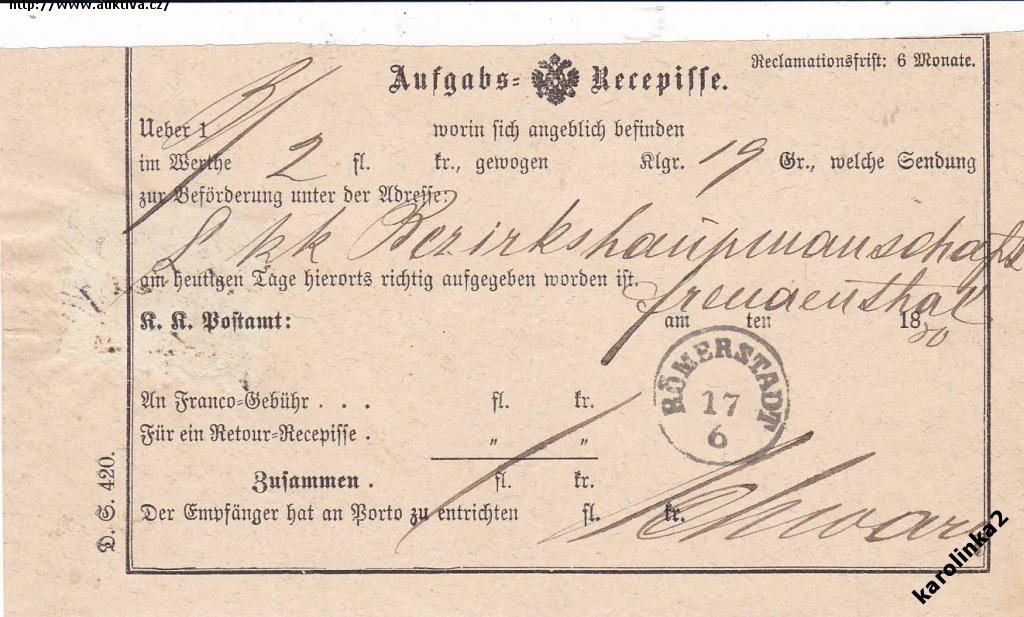 http://www.auktiva.cz/
Aufgabs- Recepisse.
Reclamationsfrist: 6 Monate.
Ueber 1 worin sich angeblich befinden
im Werthe 2 fl. kr., gewogen Klgr. 19 Gr., welche Sendung
zur Beförderung unter der Adresse:
kk Bezirkshaupmanschaft
am heutigen Tage hierorts richtig aufgegeben worden ist.
Freudenthal
K. K. Postamt: am ten 18
RÖMERSTADT
17
6
An Franco-Gebühr . . . fl. kr.
Für ein Retour-Recepisse . " "
Zusammen . fl. kr.
Der Empfänger hat an Porto zu entrichten fl. kr.
Schwarz
D. S. 420.
karolinka2